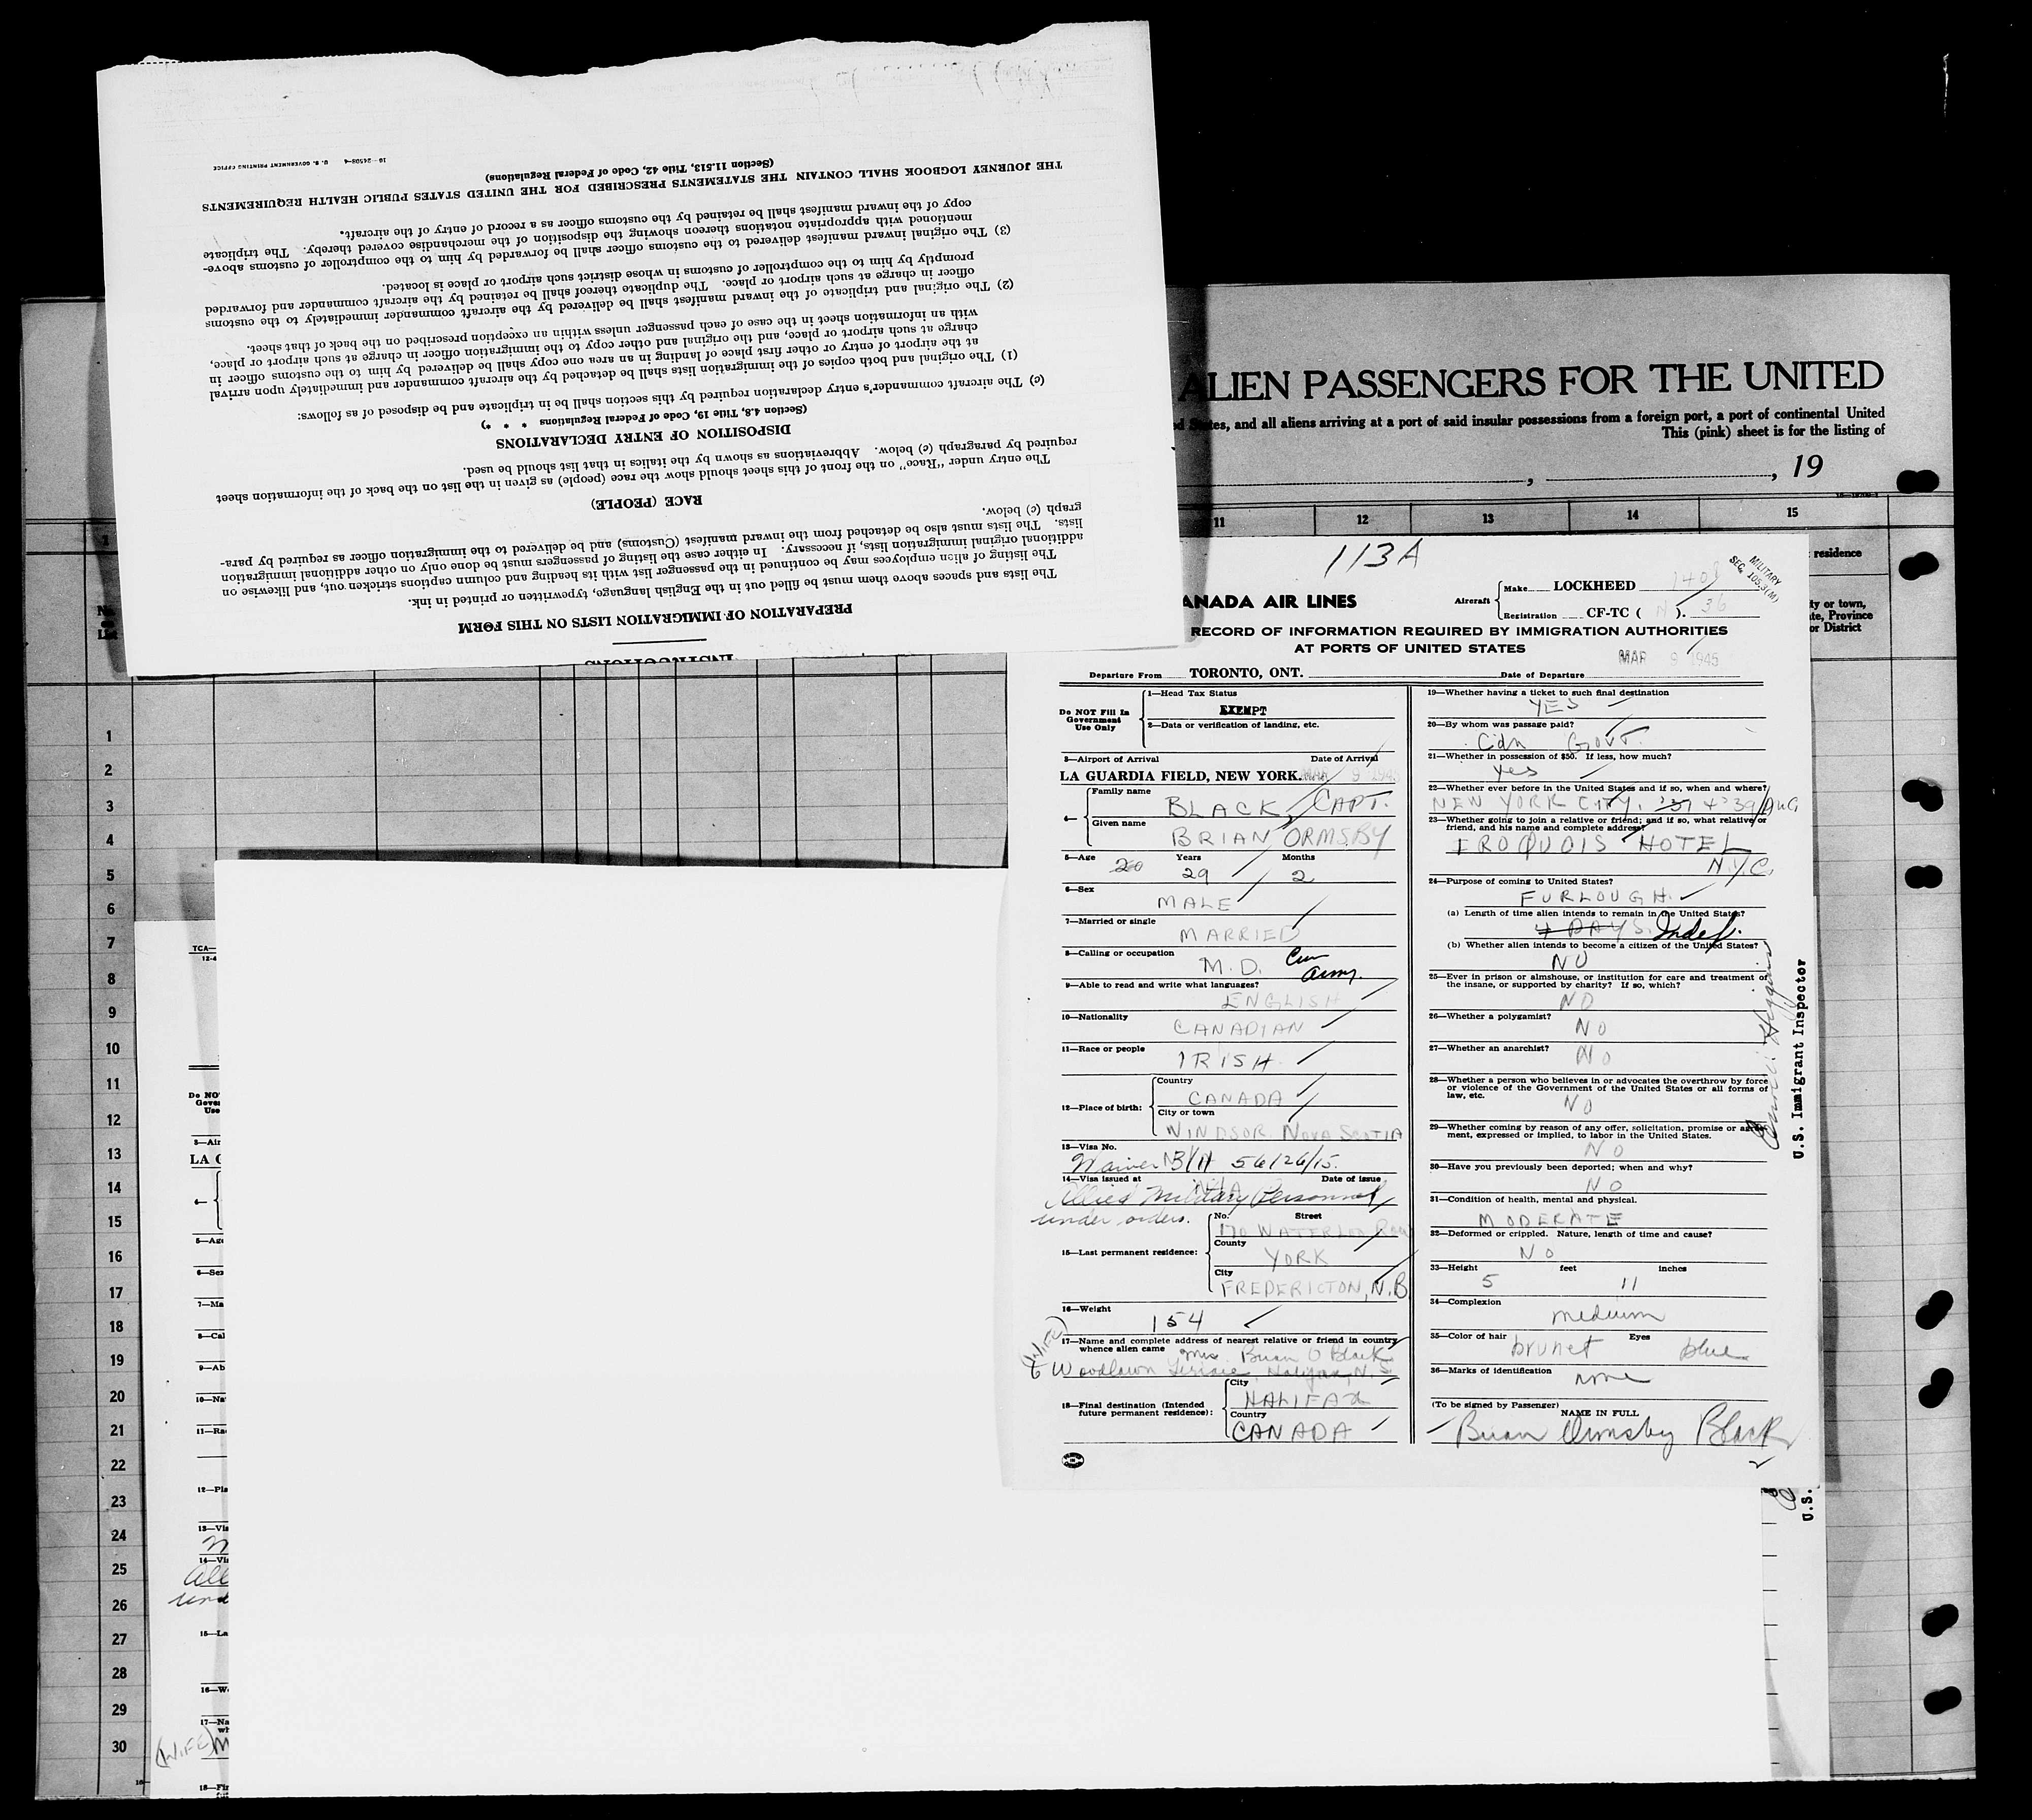 INSTRUCTIONS
PREPARATION OF IMMIGRATION LISTS ON THIS FORM
The lists and spaces above them must be filled out in the English language, typewritten or printed in ink.
The listing of alien employees may be continued in the passenger list with its heading and column captions stricken out, and likewise on
additional original immigration lists, if necessary. In either case the listing of passengers must be done only on other additional immigration
lists. The lists must also be detached from the inward manifest (Customs) and be delivered to the immigration officer as required by para-
graph (c) below.
RACE (PEOPLE)
The entry under "Race" on the front of this sheet should show the race (people) as given in the list on the back of the information sheet
required by paragraph (c) below. Abbreviations as shown by the italics in that list should be used.
DISPOSITION OF ENTRY DECLARATIONS
(Section 4.8, Title 19, Code of Federal Regulations * * *)
(c) The aircraft commander's entry declaration required by this section shall be in triplicate and be disposed of as follows:
(1) The original and both copies of the immigration lists shall be detached by the aircraft commander and immediately upon arrival
at the airport of entry or other first place of landing in an area one copy shall be delivered by him to the customs officer in
charge at such airport or place, and the original and other copy to the immigration officer in charge at such airport or place,
with an information sheet in the case of each passenger unless within an exception prescribed on the back of that sheet.
(2) The original and triplicate of the inward manifest shall be delivered by the aircraft commander immediately to the customs
officer in charge at such airport or place. The duplicate thereof shall be retained by the aircraft commander and forwarded
promptly by him to the comptroller of customs in whose district such airport or place is located.
(3) The original inward manifest delivered to the customs officer shall be forwarded by him to the comptroller of customs above-
mentioned with appropriate notations thereon showing the disposition of the merchandise covered thereby. The triplicate
copy of the inward manifest shall be retained by the customs officer as a record of entry of the aircraft.
THE JOURNEY LOGBOOK SHALL CONTAIN THE STATEMENTS PRESCRIBED FOR THE UNITED STATES PUBLIC HEALTH REQUIREMENTS
(Section 11.513, Title 42, Code of Federal Regulations)
16—24508-4 U. S. GOVERNMENT PRINTING OFFICE
ALIEN PASSENGERS FOR THE UNITED
States, and all aliens arriving at a port of said insular possessions from a foreign port, a port of continental United
This (pink) sheet is for the listing of
, , 19
11 12 13 14 15
residence
ty or town,
te, Province
or District
113A
MILITARY
SEC. 105.3(M)
ANADA AIR LINES
Aircraft
Make LOCKHEED 1408
Registration CF-TC ( N ). 36
RECORD OF INFORMATION REQUIRED BY IMMIGRATION AUTHORITIES
AT PORTS OF UNITED STATES
MAR 9 1945
Departure From TORONTO, ONT. Date of Departure
Do NOT Fill In
Government
Use Only
1—Head Tax Status
EXEMPT
2—Data or verification of landing, etc.
3—Airport of Arrival Date of Arrival
LA GUARDIA FIELD, NEW YORK. MAR 9 1945
4—
Family name BLACK, CAPT.
Given name BRIAN ORMSBY
5—Age Years Months
20 29 2
6—Sex
MALE
7—Married or single
MARRIED
8—Calling or occupation
M.D. Can Army.
9—Able to read and write what languages?
ENGLISH
10—Nationality
CANADIAN
11—Race or people
IRISH
12—Place of birth:
Country
CANADA
City or town
WINDSOR NOVA SCOTIA
13—Visa No.
Waiver 56126/15.
14—Visa issued at Date of issue
Allied Military Personnel
under orders.
15—Last permanent residence:
No. Street
170 WATERLOO Row
County
YORK
City
FREDERICTON, N.B.
16—Weight
154
17—Name and complete address of nearest relative or friend in country
whence alien came Mrs. Brian O Black
(WIFE)
6 Woodlawn Terrace, Halifax, N.S.
18—Final destination (Intended
future permanent residence):
City
HALIFAX
Country
CANADA
19—Whether having a ticket to such final destination
YES
20—By whom was passage paid?
Cdn Govt.
21—Whether in possession of $50. If less, how much?
Yes
22—Whether ever before in the United States and if so, when and where?
NEW YORK CITY. '37 + '39/AUG
23—Whether going to join a relative or friend; and if so, what relative or
friend, and his name and complete address?
IROQUOIS HOTEL
N.Y.C.
24—Purpose of coming to United States?
FURLOUGH.
(a) Length of time alien intends to remain in the United States?
4 DAYS. Indef.
(b) Whether alien intends to become a citizen of the United States?
NO
25—Ever in prison or almshouse, or institution for care and treatment of
the insane, or supported by charity? If so, which?
NO
26—Whether a polygamist?
NO
27—Whether an anarchist?
No
28—Whether a person who believes in or advocates the overthrow by force
or violence of the Government of the United States or all forms of
law, etc.
NO
29—Whether coming by reason of any offer, solicitation, promise or agree-
ment, expressed or implied, to labor in the United States.
NO
30—Have you previously been deported; when and why?
NO
31—Condition of health, mental and physical.
MODERATE
32—Deformed or crippled. Nature, length of time and cause?
NO
33—Height feet inches
5 11
34—Complexion
medium
35—Color of hair Eyes
brunet blue
36—Marks of identification
none
(To be signed by Passenger)
NAME IN FULL
Brian Ormsby Black
U.S. Immigrant Inspector
U.S.
1
2
3
4
5
6
7
8
9
10
11
12
13
14
15
16
17
18
19
20
21
22
23
24
25
26
27
28
29
30
TCA—
12-4
Do NO
Gover
Use
3—Air
LA G
4—
5—Age
6—Sex
7—Ma
8—Cal
9—Ab
10—Na
11—Ra
12—Pla
13—Vis
14—Vi
All
und
15—La
16—W
17—Na
wh
(WIFE) M
18—Fi